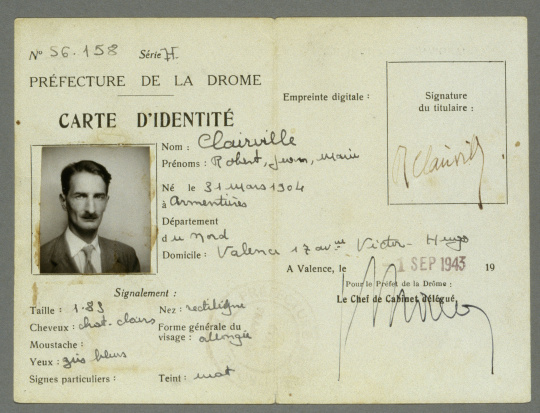 No 56.158 Série H.
PRÉFECTURE DE LA DROME
CARTE D'IDENTITÉ
Nom : Clairville
Prénoms : Robert, Jean, Marie
Né le 31 mars 1904
à Armentières
Département
du Nord
Domicile : Valence 17 avnue Victor-Hugo
Signalement :
Taille : 1.83
Cheveux : chat. clairs
Moustache :
Yeux : gris bleus
Signes particuliers :
Nez : rectiligne
Forme générale du
visage : allongée
Teint : mat
Empreinte digitale :
Signature
du titulaire :
R Clairville
A Valence, le 1 SEP 1943 19
Pour le Préfet de la Drôme :
Le Chef de Cabinet délégué,